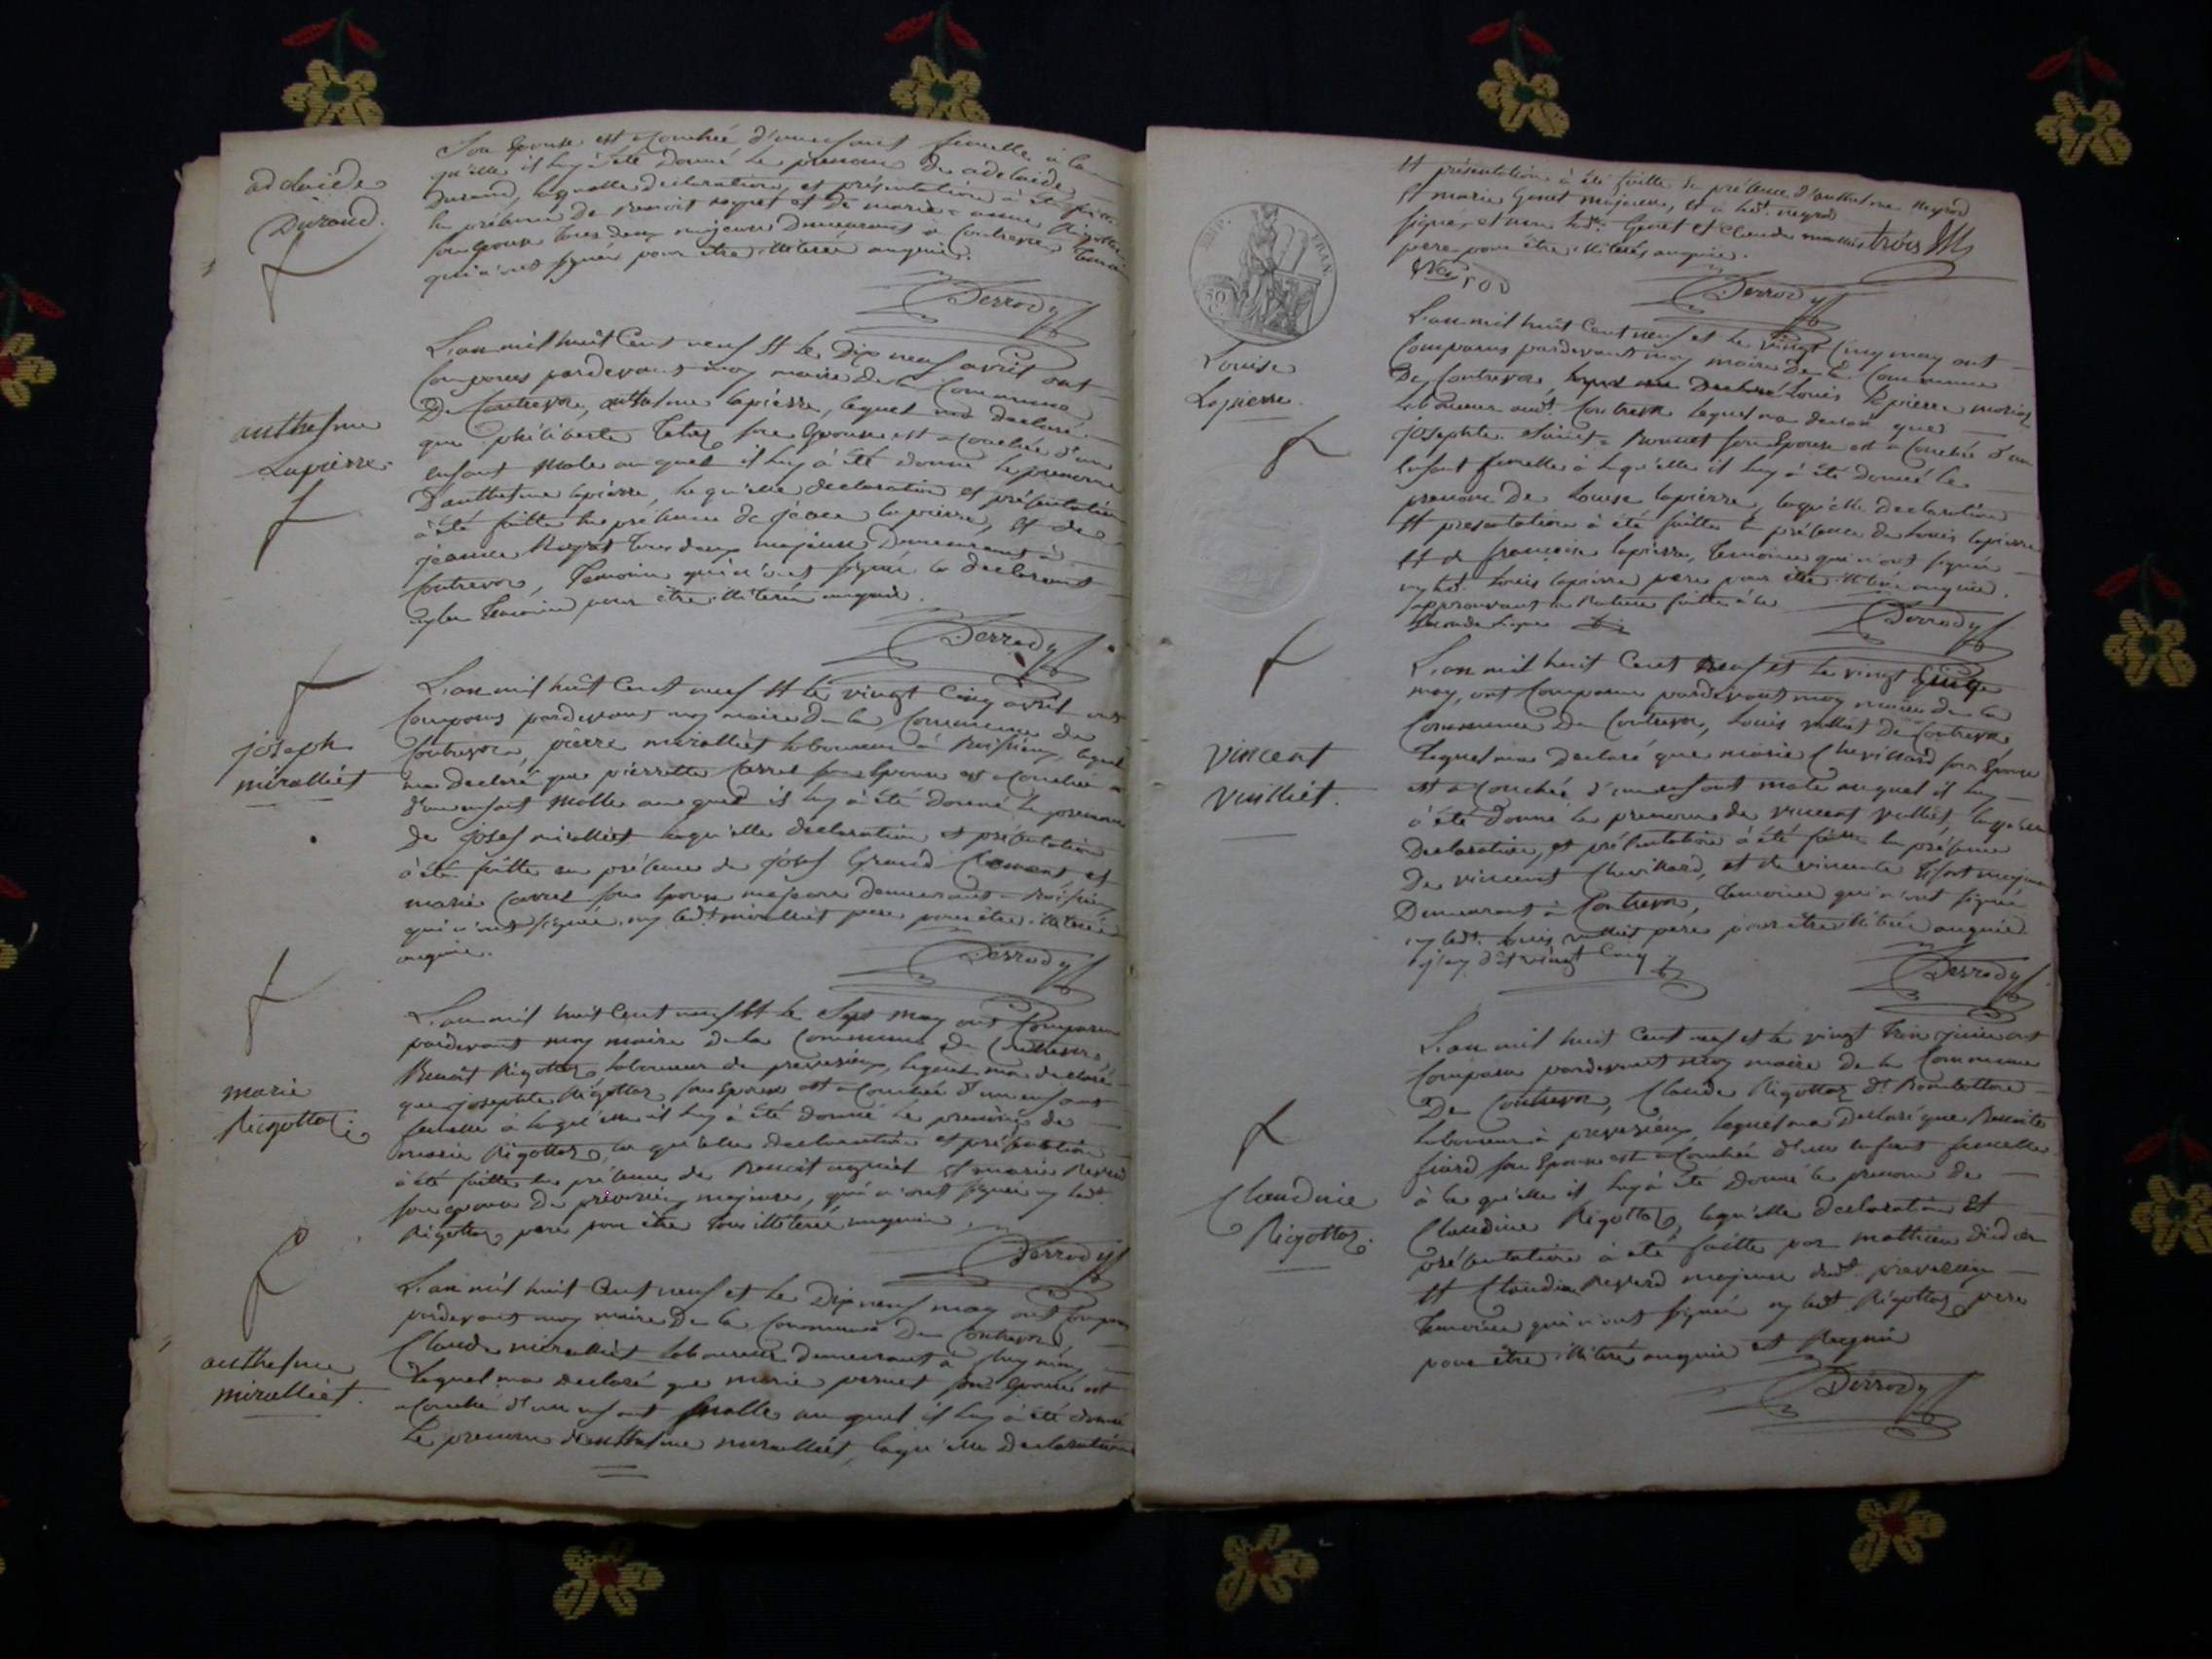 adelaide
Durand.
Son Epouse est acouchée d'un enfant femelle à la
qu'elle il luy à été donné le prenom de adelaide
Durand, laqu'elle declaration, et présentation à été faitte
en présence de benoit et de marie anne Rigottaz
son epouse tous deux majeurs demeurants a Contrevoz temoins
qui n'ont signés pour etre illiteré anquis.
Derrody
anthelme
Lapierre
L'an mil huit Cent neuf et le Dix neuf avril ont
Comparus pardevant moy maire de la Commune
De Contrevoz, anthelme lapierre, lequel ma declaré
que philiberte son Epouse est acouchée d'un
enfant Male auquel il luy à été donné le prenom
D'anthelme lapierre, laqu'elle declaration et présentation
à été faitte en présence de jean lapierre, et de
jeanne tous deux majeurs Demeurant à
Contrevoz, temoins qui n'ont signé le declarant
ny les temoins pour être illiteré anquis.
Derrody
joseph
miralliét
L'an mil huit Cent neuf et le vingt Cinq avril ont
Comparus pardevant moy maire de la Commune de
Contrevoz, pierre miralliét laboureur à lequel
ma declaré que pierrette Carrel son Epouse est acouchée
d'un enfant Malle auquel il luy à été donné le prenom
de josef miralliét laqu'elle declaration et présentation
à été faitte en présence de josef Grand Clement, et
marie Carrel son epouse majeurs demeurants
qui n'ont signé ny led.t miralliét pere pour être illiteré
anquis.
Derrody
marie
Rigottaz
L'an mil huit Cent neuf et le Sept may ont Comparu
pardevant moy maire de la Commune de Contrevoz
Benoit Rigottaz laboureur de preveyzieu, lequel ma declaré
que josephte Rigottaz son Epouse est acouchée d'un enfant
femelle à laqu'elle il luy à été donné le prenom de
marie Rigottaz, laqu'elle declaration et présentation
à été faitte en présence de Benoit et marie
son epouse De majeurs, qui n'ont signé ny led.t
Rigottaz pere pour être tous illiteré anquis.
Derrody
anthelme
miralliét.
L'an mil huit Cent neuf et le Dix neuf may ont Comparu
pardevant moy maire De la Commune De Contrevoz
Claude miralliét laboureur demeurant à
Lequel ma declaré que marie pernet son epouse est
acouchée d'un enfant Malle auquel il luy à été donné
Le prenom d'anthelme miralliét, laqu'elle declaration
et présentation à été faitte en présence d'anthelme
et marie Genet majeurs, et à led.t
signé, et non lad.te Genet et Claude trois
pere pour être illiterés anquis.
Derrody
Louise
Lapierre.
L'an mil huit Cent neuf et le vingt Cinq may ont
Comparus pardevant moy maire De la Commune
De Contrevoz, Louis lapierre
laboureur aud.t Contrevoz lequel ma declaré que
josephte son Epouse est acouchée d'un
Enfant femelle à laqu'elle il luy à été donné le
prenom De Louise lapierre, laqu'elle declaration
et presentation à été faitte en présence de Louis lapierre
et de françoise lapierre, temoins qui n'ont signé
ny led.t Louis lapierre pere pour être illiteré anquis.
approuvant la Rature faitte à la
seconde Ligne
Derrody
vincent
vuilliét.
L'an mil huit Cent neuf et le vingt Cinq
may, ont Comparus pardevant moy maire de la
Commune De Contrevoz, Louis vulliét De Contrevoz
Lequel ma declaré que marie Chevillard son Epouse
est acouchée d'un enfant male auquel il luy
à été donné le prenom de vincent vulliét, laqu'elle
Declaration, et présentation à été faitte en présence
De vincent Chevillard, et de vincente majeurs
Demeurant à Contrevoz, temoins qui n'ont signé
ny led.t Louis vulliét pere pour être illiteré anquis
vingt Cinq
Derrody
Claudine
Rigottaz.
L'an mil huit Cent neuf et le vingt trois juin ont
Comparu pardevant moy maire de la Commune
De Contrevoz, Claude Rigottaz d.t
laboureur à preveyzieu, lequel ma declaré que Benoite
fiard son Epouse est acouchée d'un enfant femelle
à laqu'elle il luy à été donné le prenom de
Claudine Rigottaz, laqu'elle declaration et
présentation à été faitte par matthieu didier
et Claudine majeurs dud.t
temoins qui n'ont signé ny led.t Rigottaz pere
pour être illiteré anquis et Requis
Derrody